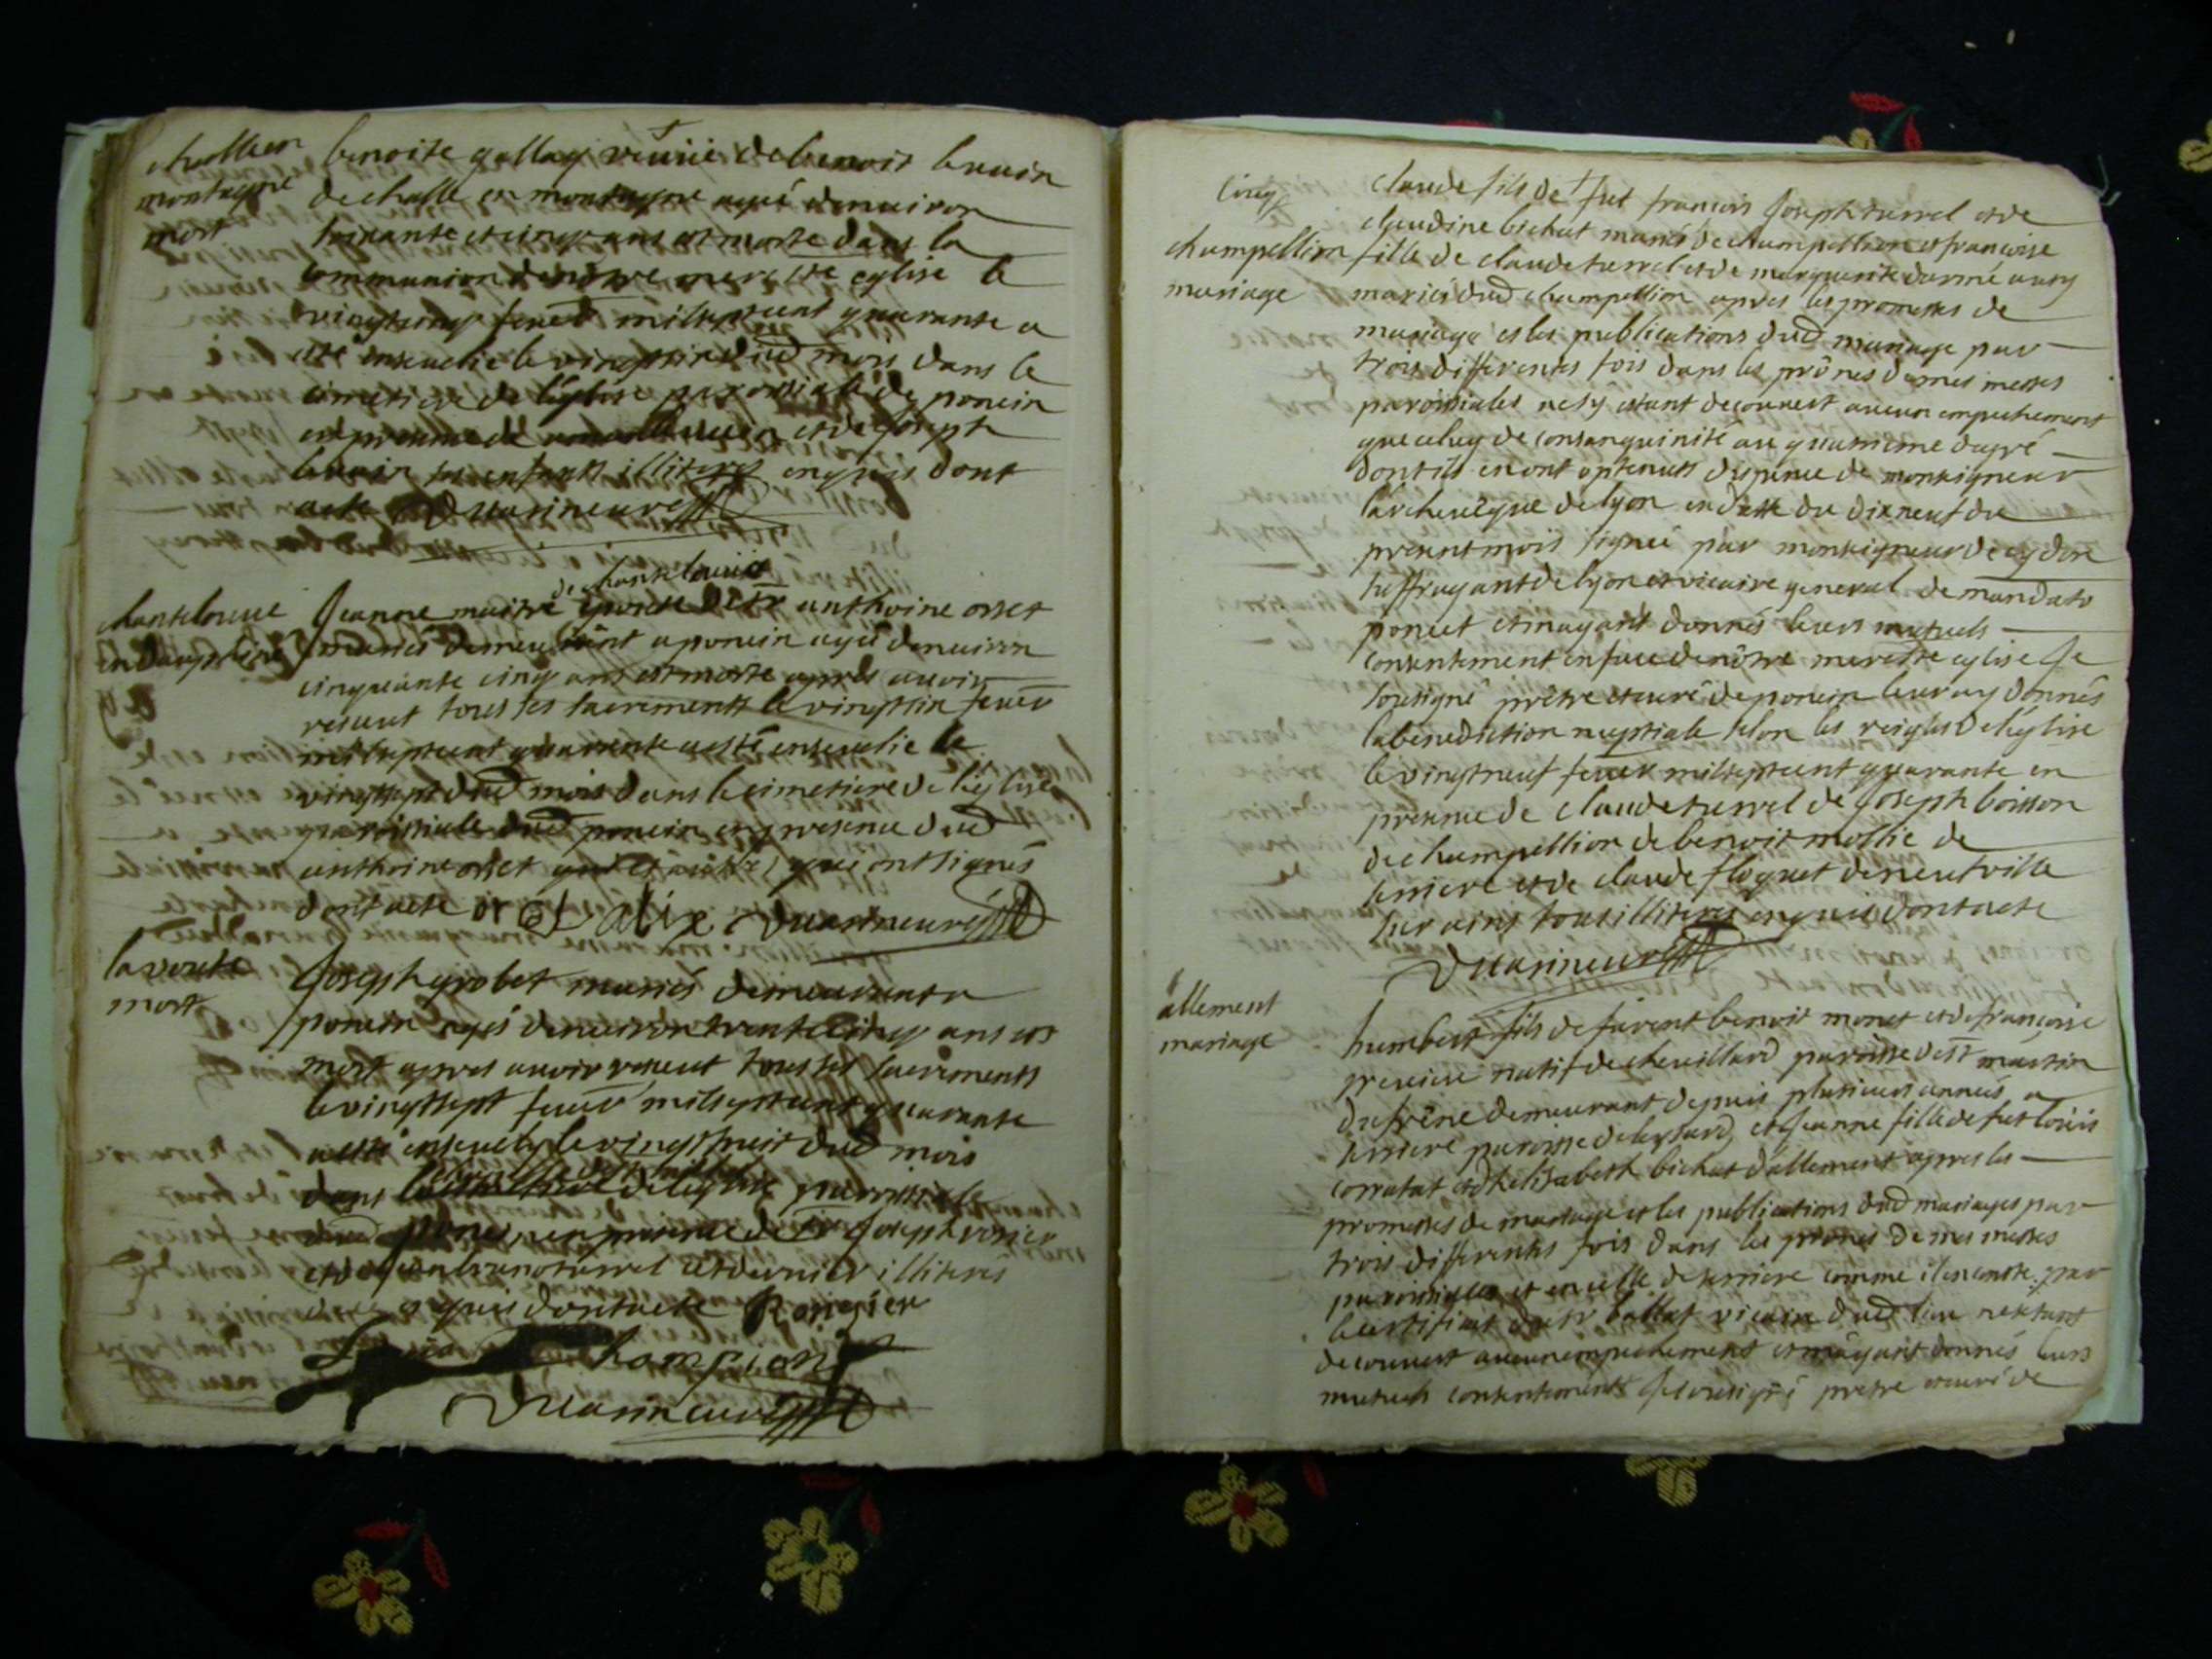 challe en
montagne
mort
benoite gallay veuve de benoit bruin
de challe en montagne agé denuiron
soixante et cinq ans est morte dans la
communion de nôtre mere ste eglise le
vingtcinq feue milseptcent quarante a
eté enseuelie le vingtsix dud mois dans le
cimetiere de l'église paroissiale de poncin
en presence de et de joseph
bruin ses enfants illiteres enquis dont
acte Duarineuré
chanteloüue
en dauphiné
de chanteloüue
Jeanne maitre epouse de sr anthoine orset
mariés demeurant a poncin agée denuiron
cinquante cinq ans est morte aprés auoir
reseut tous ses sacrements le vingtsix feuer
milseptcent quarante a esté enseuelie le
vingtsept dud mois dans le cimetiere de l'église
paroissiale dud poncin en presence dud
anthoine orset et qui ont signés
dont acte alix Duarineuré
la voute
mort
Joseph grobet mariés demeurant a
poncin agés denuiron trente cinq ans est
mort apres auoir reseut tous ses sacrements
le vingtsept feuer milseptcent quarante
a esté enseuely le vingthuit dud mois
dans de leglise paroissiale
dud poncin en presence de sr Joseph rosier
et de turrel cet dernier illiteres
enquis dont acte
Champion
Duarineuré
cinq
champellion
mariage
claude fils de fut francois Joseph turrel et de
claudine bichat mariés de champellion et francoise
fille de claude turrel et de marguerite darmé aussy
mariés dud champellion apres les promesses de
mariage et les publications dud mariage par
trois differentes fois dans les prônes de mes messes
paroissiales ne sy etant decouuert aucun empechement
que celuy de consanguinité au quatrieme degré
dont ils en ont optenuts dispence de monseigneur
l'archeuêque de lyon en datte du dixneuf du
present mois signée par monseigneur de cydon
suffragant de lyon et vicaire general de mandato
ponuet et mayant donnés leurs mutuels
consentement en face de nôtre mere ste eglise Je
sousigné prêtre et curé de poncin leur ay donnés
la benediction nuptiale selon les reigles de l'église
le vingtneuf feuer milseptcent quarante en
presence de claude turrel de Joseph boisson
de champellion de benoit mollie de
serriere et de claude floquet de neufville
sur ains tous illiteres enquis dont acte
Duarineuré
allement
mariage
humbert fils de furent benoit monet et de françoise
greuiere natif de cheuillard paroisse de st martin
du frêne demeurant depuis plusieurs années a
serriere paroisse de leyssard, et Jeanne fille de fut loüis
corratat et d'helisabeth bichat d'allement apres les
promesses de mariage et les publications dud mariages par
trois differentes fois dans les prones de mes messes
paroissiales et en celle de serriere comme il en conste par
le certificat du sr ballat vicaire dud lieu ne s'etant
decouuert aucun empechement et m'ayant donnés leurs
mutuels consentement Je sousigné prêtre et curé de